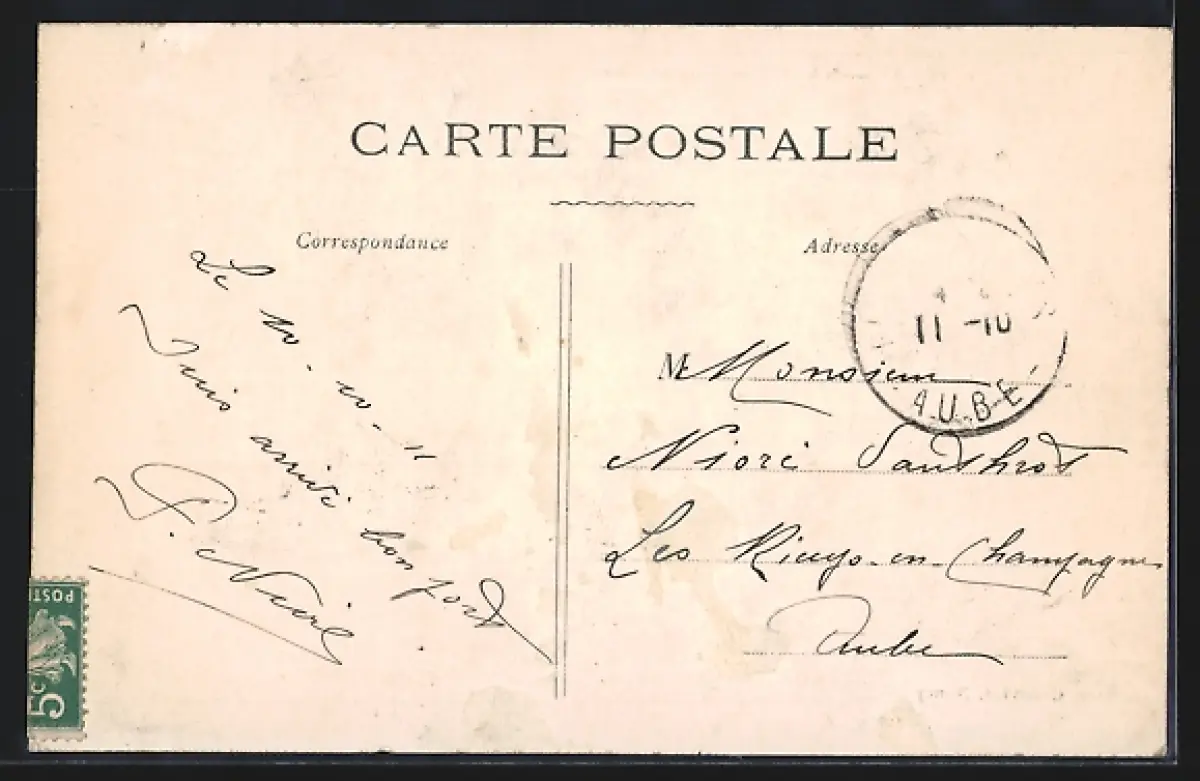 CARTE POSTALE
Correspondance
Adresse
Le 10 - 10 - 11
Suis arrivé bon port
P.
11 -10
AUBE
M Monsieur
Les Riceys-en-Champagne
Aube
POSTES
5c